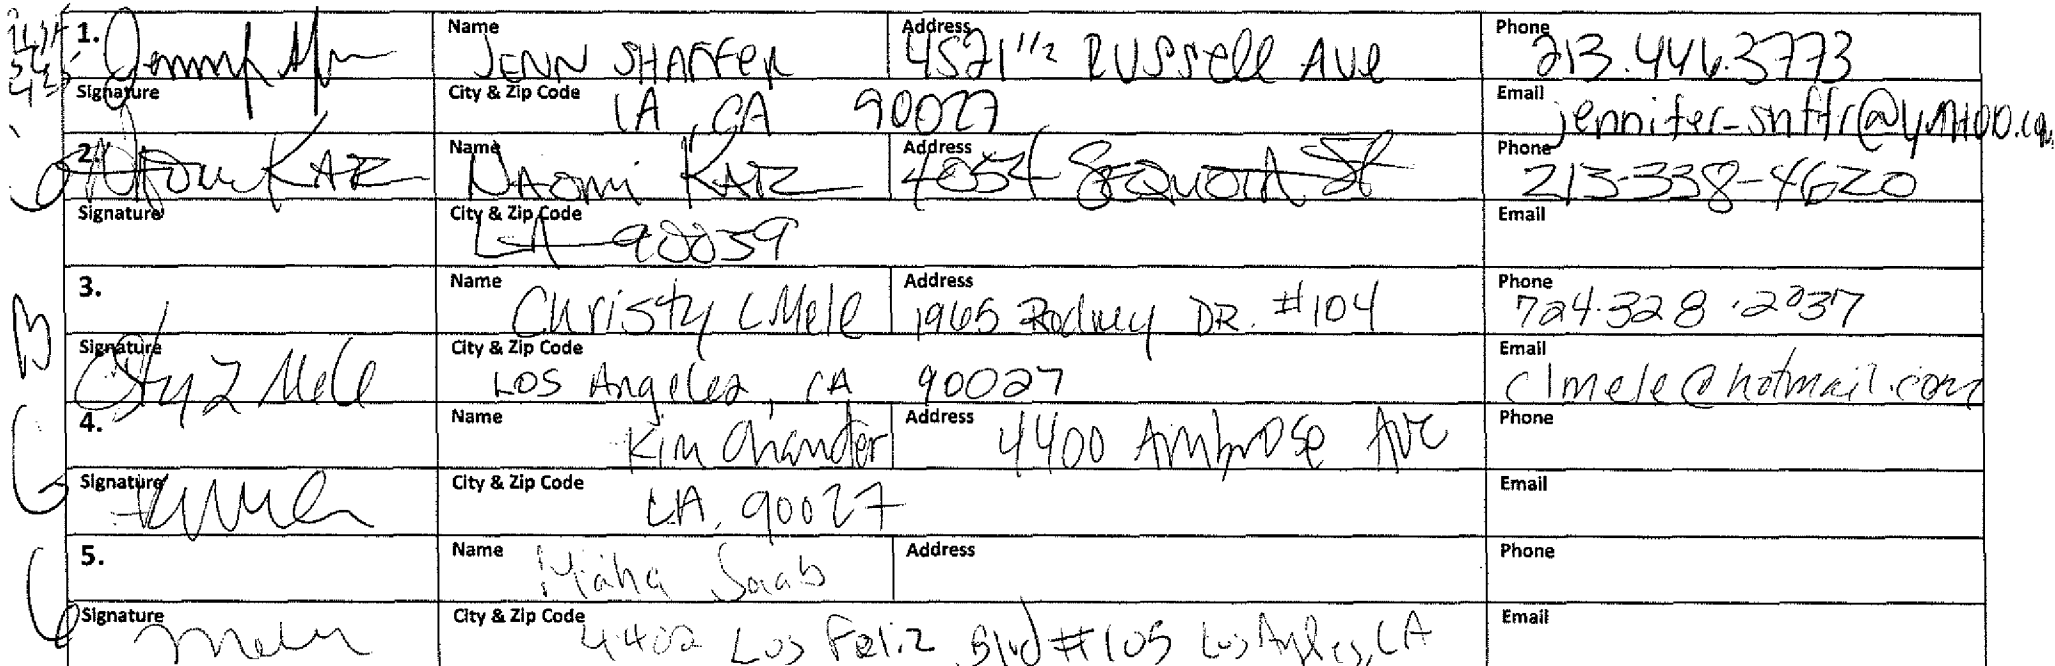 1. Name JENN SHAFFER Address 4521 1/2 RUSSell AVe Phone 213.446.3773
Signature City & Zip Code LA, CA 90027 Email jennifer-shffr@yAHOO.com
2. Naomi KATZ Name NAOMi KATZ Address 4054 SEQUOIA St Phone 213-338-4620
Signature City & Zip Code LA 90039 Email
3. Name Christy L Mele Address 1965 Rodney DR. #104 Phone 724.328.2037
Signature City & Zip Code LOS Angeles, CA 90027 Email clmele@hotmail.com
4. Name Kim Chandler Address 4400 Ambrose Ave Phone
Signature City & Zip Code LA, 90027 Email
5. Name Maha Saab Address Phone
Signature City & Zip Code 4402 Los Feliz Blvd #105 Los Angeles, CA Email